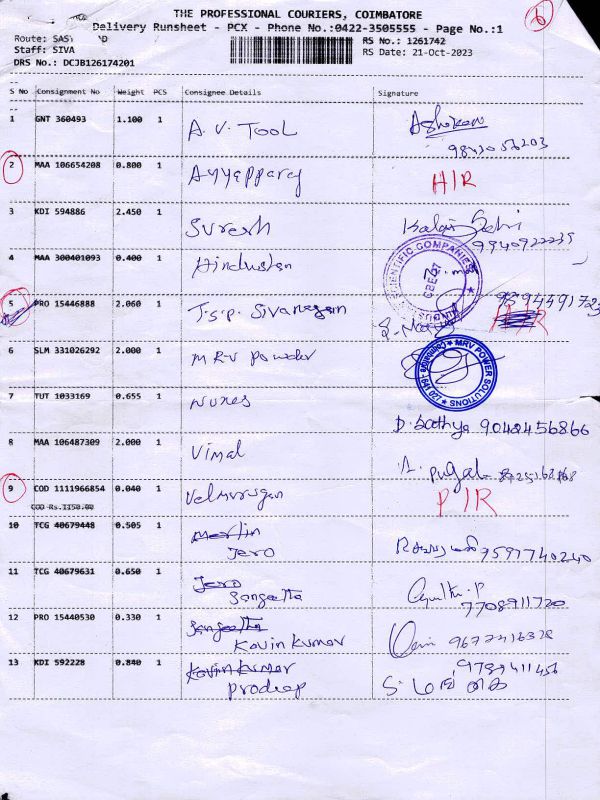 THE PROFESSIONAL COURIERS, COIMBATORE
Delivery Runsheet - PCX - Phone No.:0422-3505555 - Page No.:1
Route: SAS D RS No.: 1261742
Staff: SIVA RS Date: 21-Oct-2023
DRS No.: DCJB126174201
S No Consignment No Weight PCS Consignee Details Signature
1 GNT 360493 1.100 1 A.V. TOOL Ashokan
9842056203
2 MAA 106654208 0.800 1 Ayyapparaj H/R
3 KDI 594886 2.450 1 Suresh
9940922235
4 MAA 300401093 0.400 1 Hindustan
SCIENTIFIC COMPANIES
5 PRO 15446888 2.060 1 T.S.P. Sivanesam H/R
6 SLM 331026292 2.000 1 MRV Powder
MRV POWER SOLUTIONS
7 TUT 1033169 0.655 1
D. Sathya 9040456866
8 MAA 106487309 2.000 1 Vimal
9 COD 1111966854 0.040 1 Velmurugan P/R
COD Rs.1150.00
10 TCG 40679448 0.505 1 Merlin
Jero 9597740240
11 TCG 40679631 0.650 1 Jero
Sangeetha
7708911720
12 PRO 15440530 0.330 1 Sangeetha
Kavin Kumar
13 KDI 592228 0.840 1 Kavin Kumar 9789411456
Pradeep